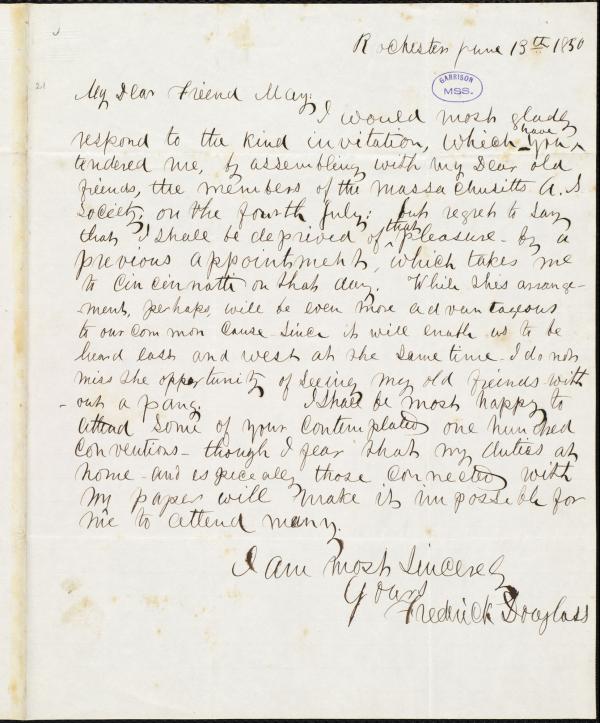 Rochester June 13th 1850
GARRISON
MSS.
My Dear Friend May:
I would most gladly
respond to the kind invitation, which you have
tendered me, by assembling with my Dear old
friends, the members of the Massachusitts A. S
Society, on the fourth July: but regret to say
that I shall be deprived of that pleasure - by a
previous appointment, which takes me
to Cincinnatti on that day. While this arrange-
ment, perhaps, will be even more advantageous
to our common cause - since it will enable us to be
heard east and west at the same time - I do not
miss the opportunity of seeing my old friends with-
out a pang. I shall be most happy to
attend some of your contemplated one hundred
conventions - though I fear that my duties at
home - and espicealy those connected with
my paper will make it impossible for
me to attend many.
I am most sincerely
Yours
Fredrick Douglass